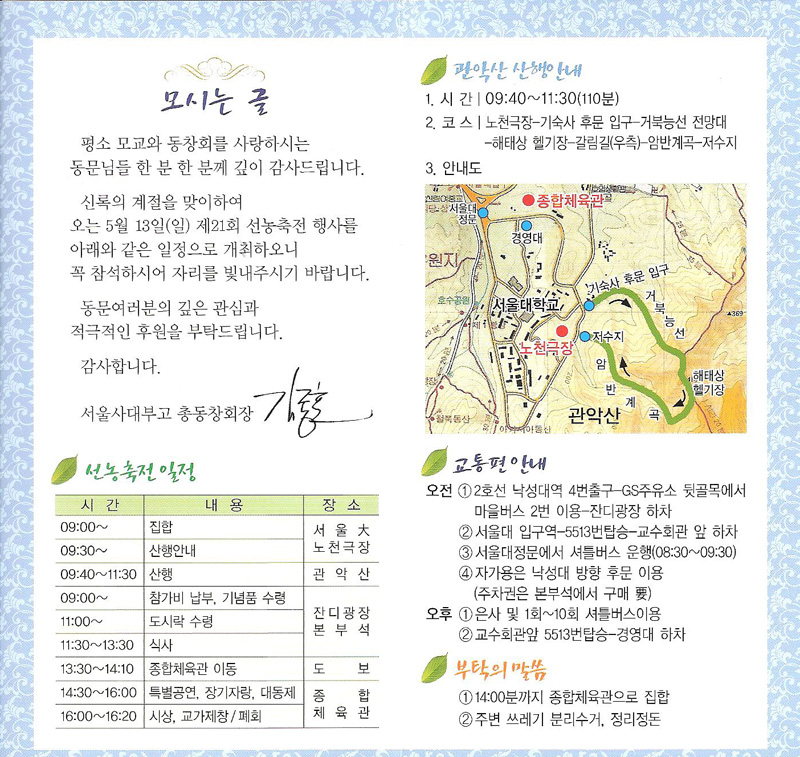 모시는 글
평소 모교와 동창회를 사랑하시는
동문님들 한 분 한 분께 깊이 감사드립니다.
신록의 계절을 맞이하여
오는 5월 13일(일) 제21회 선농축전 행사를
아래와 같은 일정으로 개최하오니
꼭 참석하시어 자리를 빛내주시기 바랍니다.
동문여러분의 깊은 관심과
적극적인 후원을 부탁드립니다.
감사합니다.
서울사대부고 총동창회장
선농축전 일정
시 간 내 용 장 소
09:00~ 집합 서 울 大
09:30~ 산행안내 노천극장
09:40~11:30 산행 관 악 산
09:00~ 참가비 납부, 기념품 수령
11:00~ 도시락 수령 잔디광장
본 부 석
11:30~13:30 식사
13:30~14:10 종합체육관 이동 도 보
14:30~16:00 특별공연, 장기자랑, 대동제 종 합
16:00~16:20 시상, 교가제창/폐회 체 육 관
관악산 산행안내
1. 시 간 | 09:40~11:30(110분)
2. 코 스 | 노천극장-기숙사 후문 입구-거북능선 전망대
-해태상 헬기장-갈림길(우측)-암반계곡-저수지
3. 안내도
종합체육관
서울대
정문
경영대
원지
호수공원
기숙사 후문 입구
서울대학교
거북능선
▲369
노천극장
저수지
암반계곡
해태상
헬기장
관악산
교통편 안내
오전 ①2호선 낙성대역 4번출구-GS주유소 뒷골목에서
마을버스 2번 이용-잔디광장 하차
②서울대 입구역-5513번탑승-교수회관 앞 하차
③서울대정문에서 셔틀버스 운행(08:30~09:30)
④자가용은 낙성대 방향 후문 이용
(주차권은 본부석에서 구매 要)
오후 ①은사 및 1회~10회 셔틀버스이용
②교수회관앞 5513번탑승-경영대 하차
부탁의 말씀
①14:00분까지 종합체육관으로 집합
②주변 쓰레기 분리수거, 정리정돈